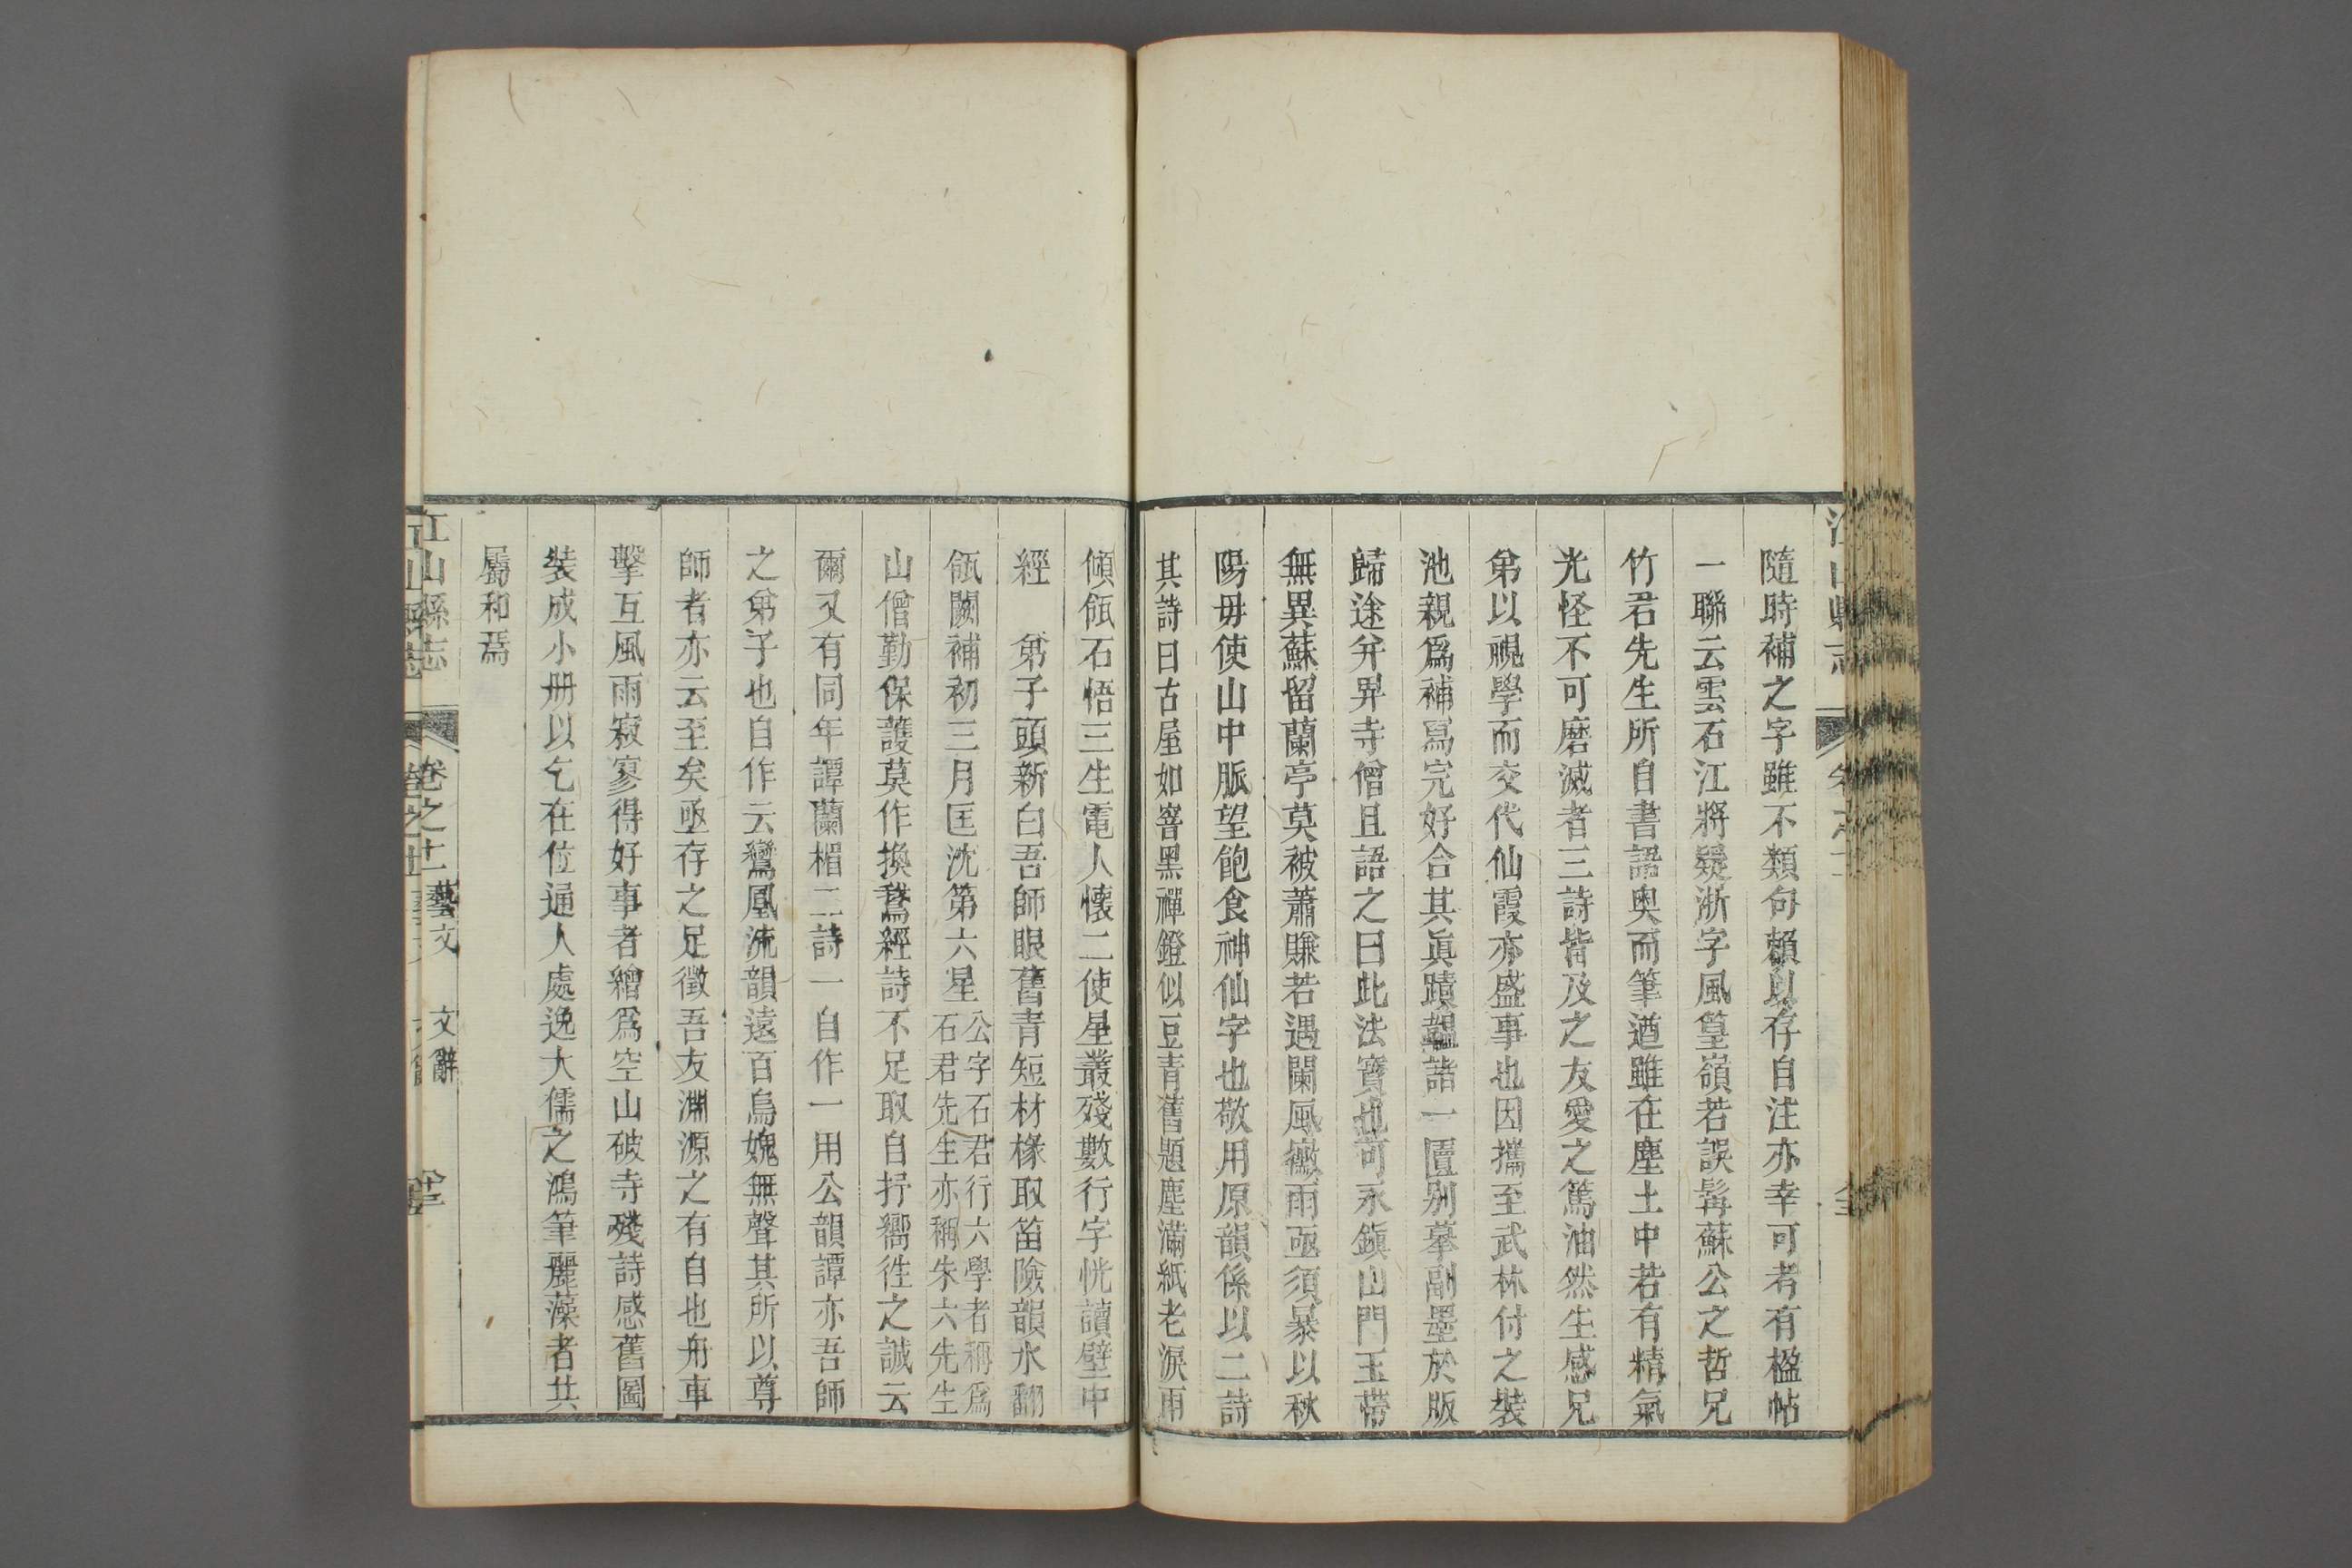 隨時補之字雖不類句賴以存自注亦幸可考有楹帖
一聯云雲石江將疑浙字風篁嶺若誤髯蘇公之哲兄
竹君先生所自書語奥而筆遒雖在塵土中若有精氣
光怪不可磨滅者三詩皆及之友愛之篤油然生感兄
弟以視學而交代仙霞亦盛事也因攜至武林付之裝
池親爲補寫完好合其眞蹟韞諸一匵别摹副墨於版
歸途幷畀寺僧且語之曰此法寶也可永鎭山門玉帶
無異蘇留蘭亭莫被蕭賺若遇闌風黴雨亟須暴以秋
陽毋使山中脈望飽食神仙字也敬用原韻係以二詩
其詩曰古屋如窖黑禪鐙似豆青舊題塵滿紙老淚雨
傾缻石悟三生電人懷二使星叢殘數行字恍讀壁中
經　弟子頭新白吾師眼舊青短材椽取笛險韻水翻
缻闕補初三月匡沈第六星公字石君行六學者稱爲石君先生亦稱朱六先生
山僧勤保護莫作換鵞經詩不足取自抒嚮徃之誠云
爾又有同年譚蘭楣二詩一自作一用公韻譚亦吾師
之弟子也自作云鸞鳳流韻遠百鳥媿無聲其所以尊
師者亦云至矣亟存之足徵吾友淵源之有自也舟車
擊互風雨寂寥得好事者繪爲空山破寺殘詩感舊圖
裝成小册以乞在位通人處逸大儒之鴻筆麗藻者共
屬和焉
江山縣志　卷之十一　藝文　文辭